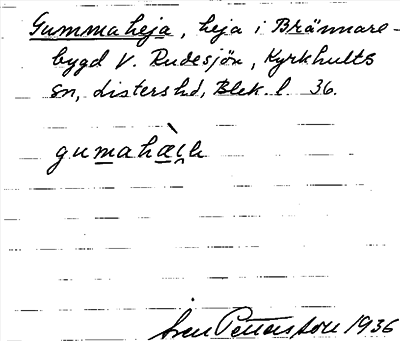 Gummaheja, heja i Brännare-
bygd V. Rudesjön, Kyrkhults
sn, Listers hd, Blek. l. 36.
Sven Petersson 1936